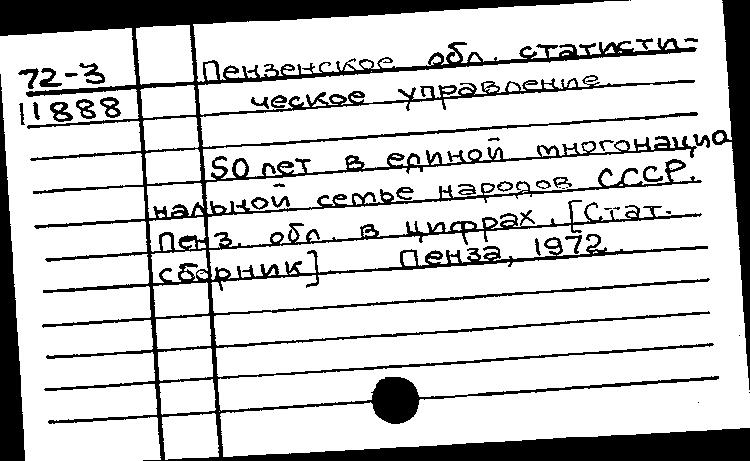 72-3 Пензенское обл. статисти-
11888 ческое управление.
50 лет в единой многонацио
нальной семье народов СССР.
Пенз. обл. в цифрах. [Стат.
сборник] Пенза, 1972.